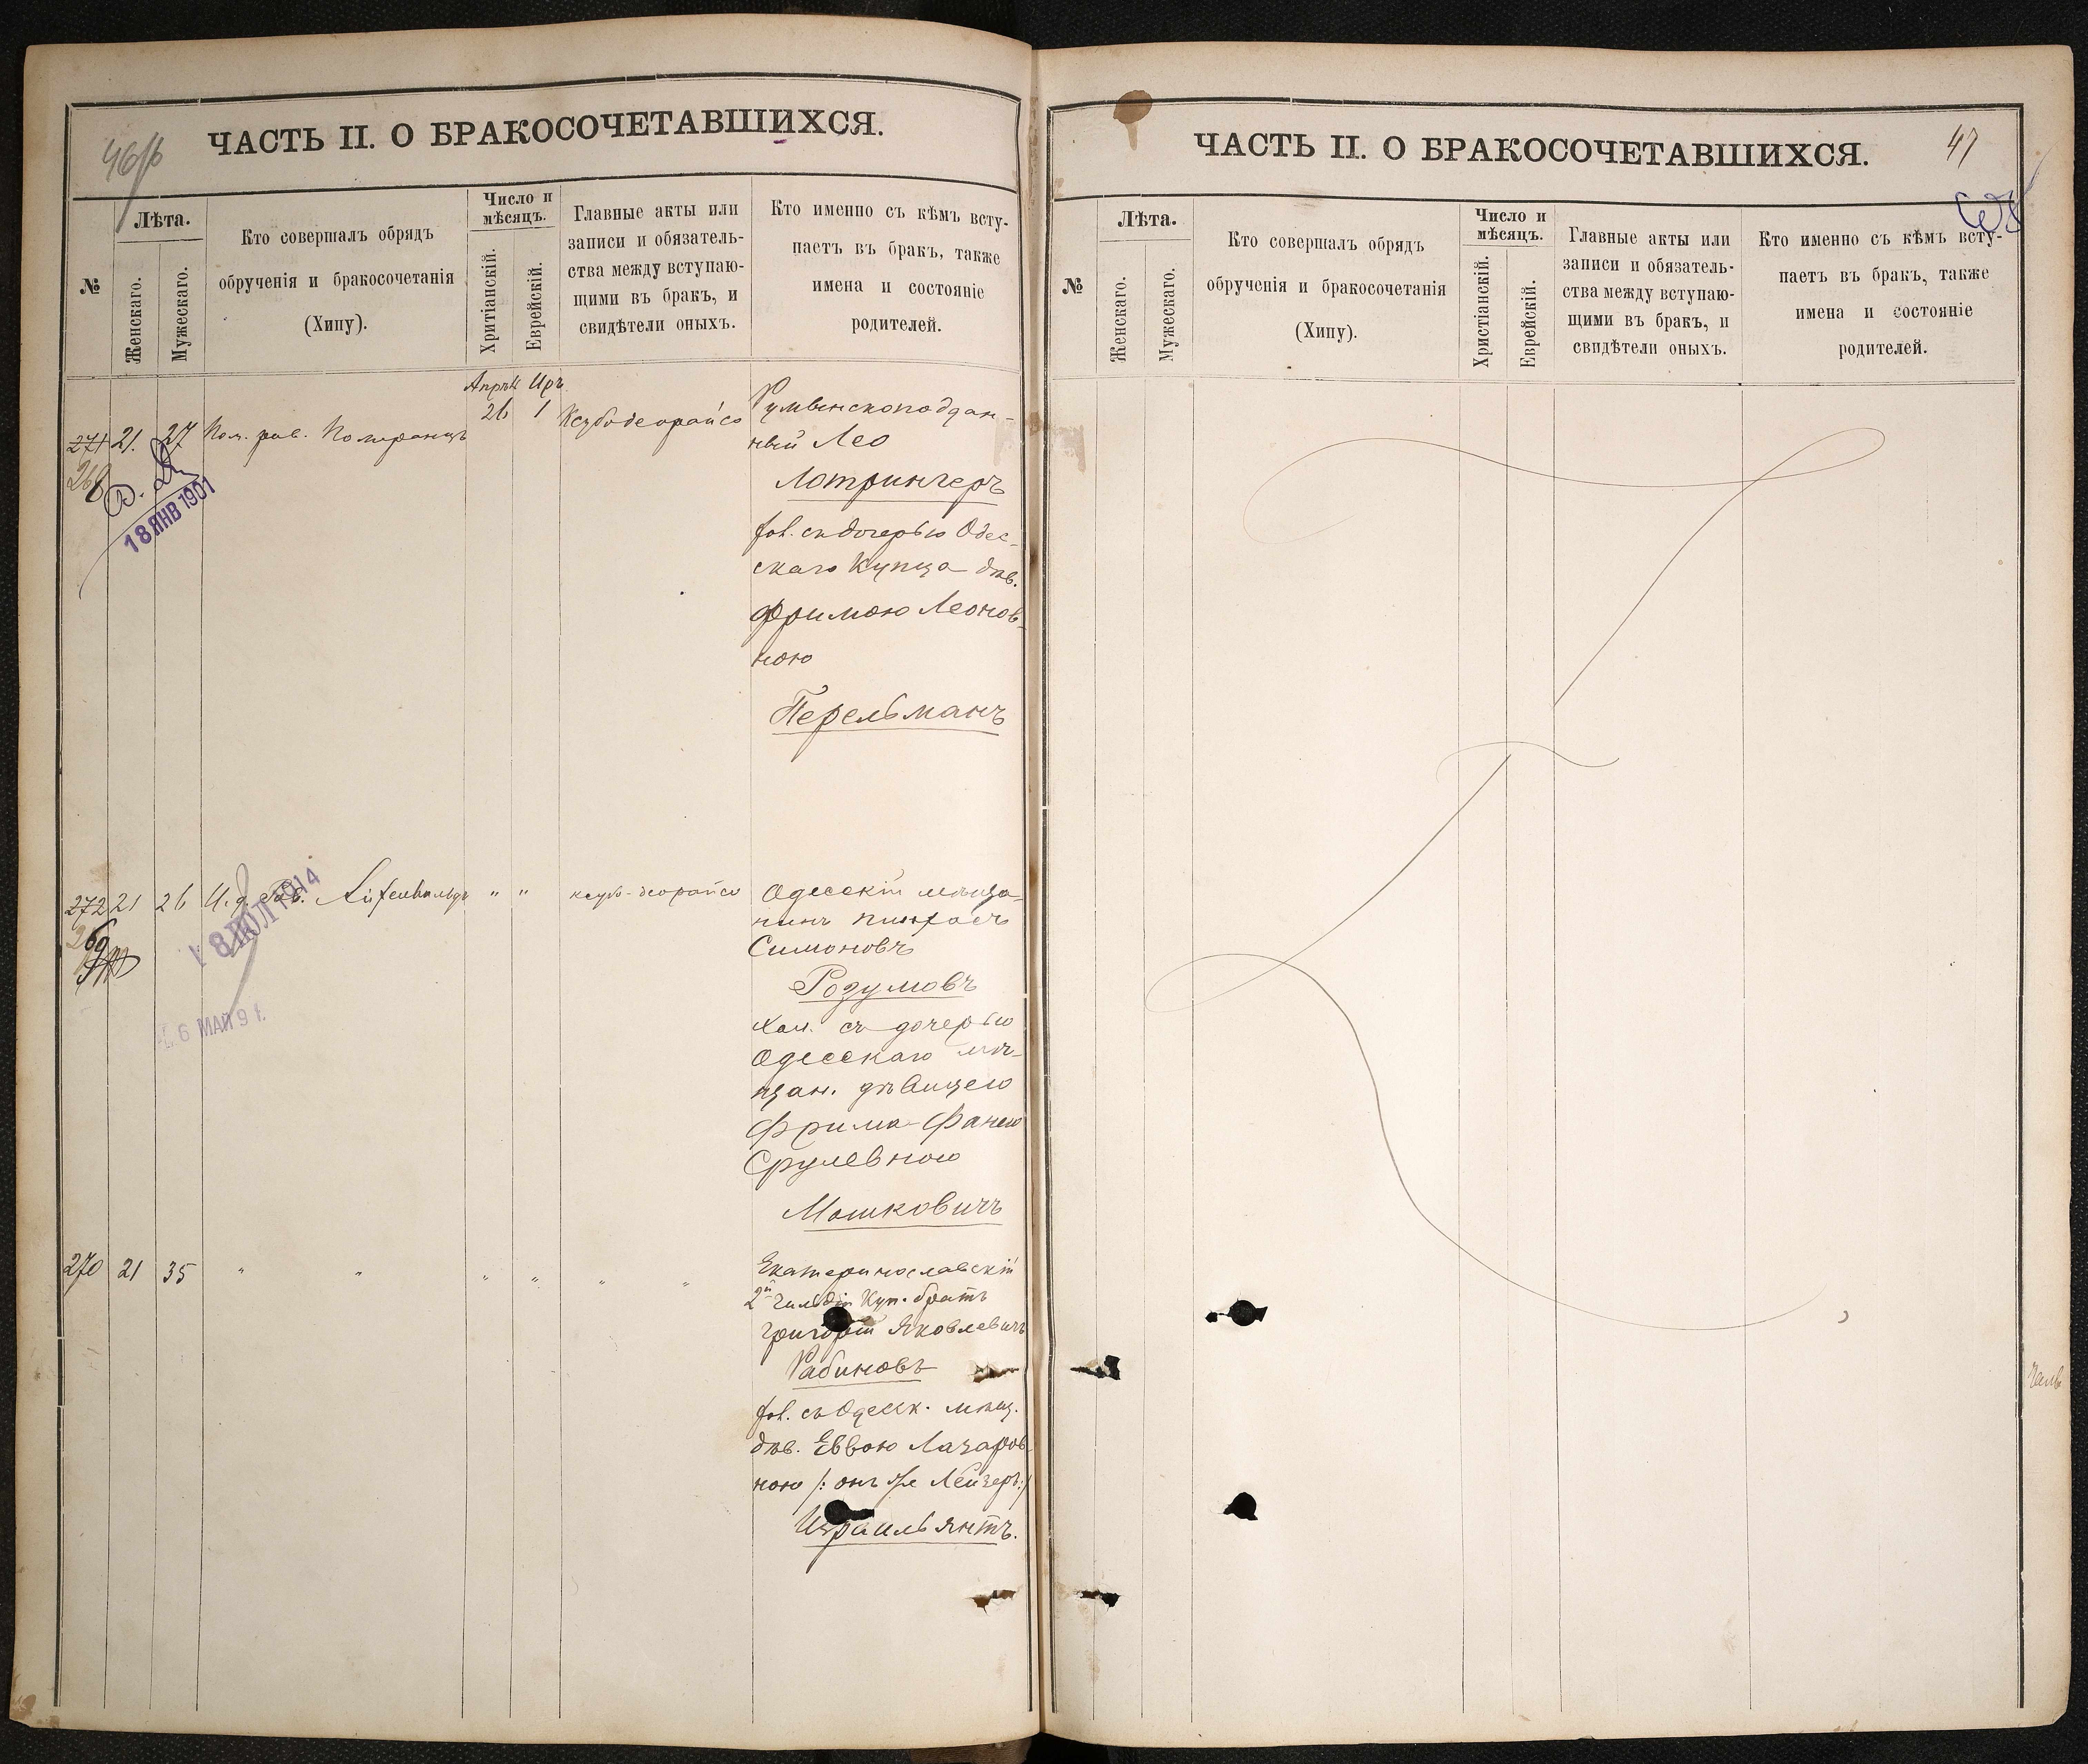 ЧАСТЬ II. О БРАКОСОЧЕТАВШИХСЯ.
№
Лѣта.
Женскаго.
Мужескаго.
Кто совершалъ обрядъ
обрученія и бракосочетанія
(Хипу).
Число и
мѣсяцъ.
Хритіанскій.
Еврейскій.
Главные акты или
записи и обязатель-
ства между вступаю-
щими въ бракъ, и
свидѣтели оныхъ.
Кто именно съ кѣмъ всту-
паетъ въ бракъ, также
имена и состояніе
родителей.
271 21. 27 Пом. рав. Померанцъ
Апрѣл Иръ
26 1
Ксубо деорайсо
18 ЯНВ 1901
Румынскоподдан-
ный Лео
Лотрингеръ
хол. съ дочерью Одес-
скаго Купца дѣв.
Фримою Леонов-
ною
Перельманъ
272 21 26 И. д. рав. " " ксубо-деорайсо
8 ИЮЛ 1914
6 МАЙ 9
Одесскій мѣща-
нинъ Пинхасъ
Симоновъ
Розумовъ
хол. съ дочерью
Одесскаго мѣ-
щан. дѣвицею
Фрима-Фанею
Срулевною
Мошковичъ
270 21 35 " " " " " "
Екатеринославскій
2й гильдіи Куп. братъ
Григорій Яковлевичъ
Рабиновъ
хол. съ Одесск. мѣщ.
дѣв. Еввою Лазаров-
ною /: онъ же Лейзеръ :/
Израильянтъ.
ЧАСТЬ II. О БРАКОСОЧЕТАВШИХСЯ.
47
№
Лѣта.
Женскаго.
Мужескаго.
Кто совершалъ обрядъ
обрученія и бракосочетанія
(Хипу).
Число и
мѣсяцъ.
Христіанскій.
Еврейскій.
Главные акты или
записи и обязатель-
ства между вступаю-
щими въ бракъ, и
свидѣтели оныхъ.
Кто именно съ кѣмъ всту-
паетъ въ бракъ, также
имена и состояніе
родителей.